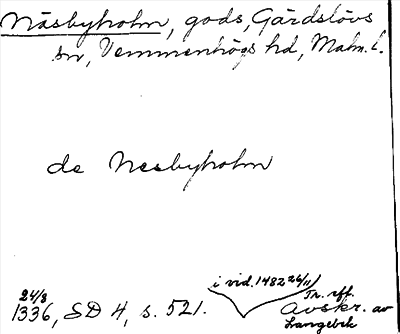 Näsbyholm, gods, Gärdslövs
sn, Vemmenhögs hd, Malm. l.
de Nesbyholm
i vid. 1482 26/11
24/8
1336, SD 4, s. 521.
Tr. eft.
avskr. av
Langebek